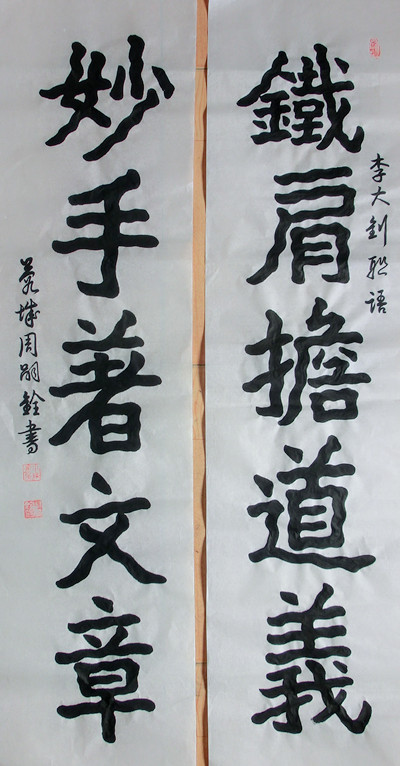 鐵肩擔道義
李大釗聯語
妙手著文章
蓉城周嗣銓書